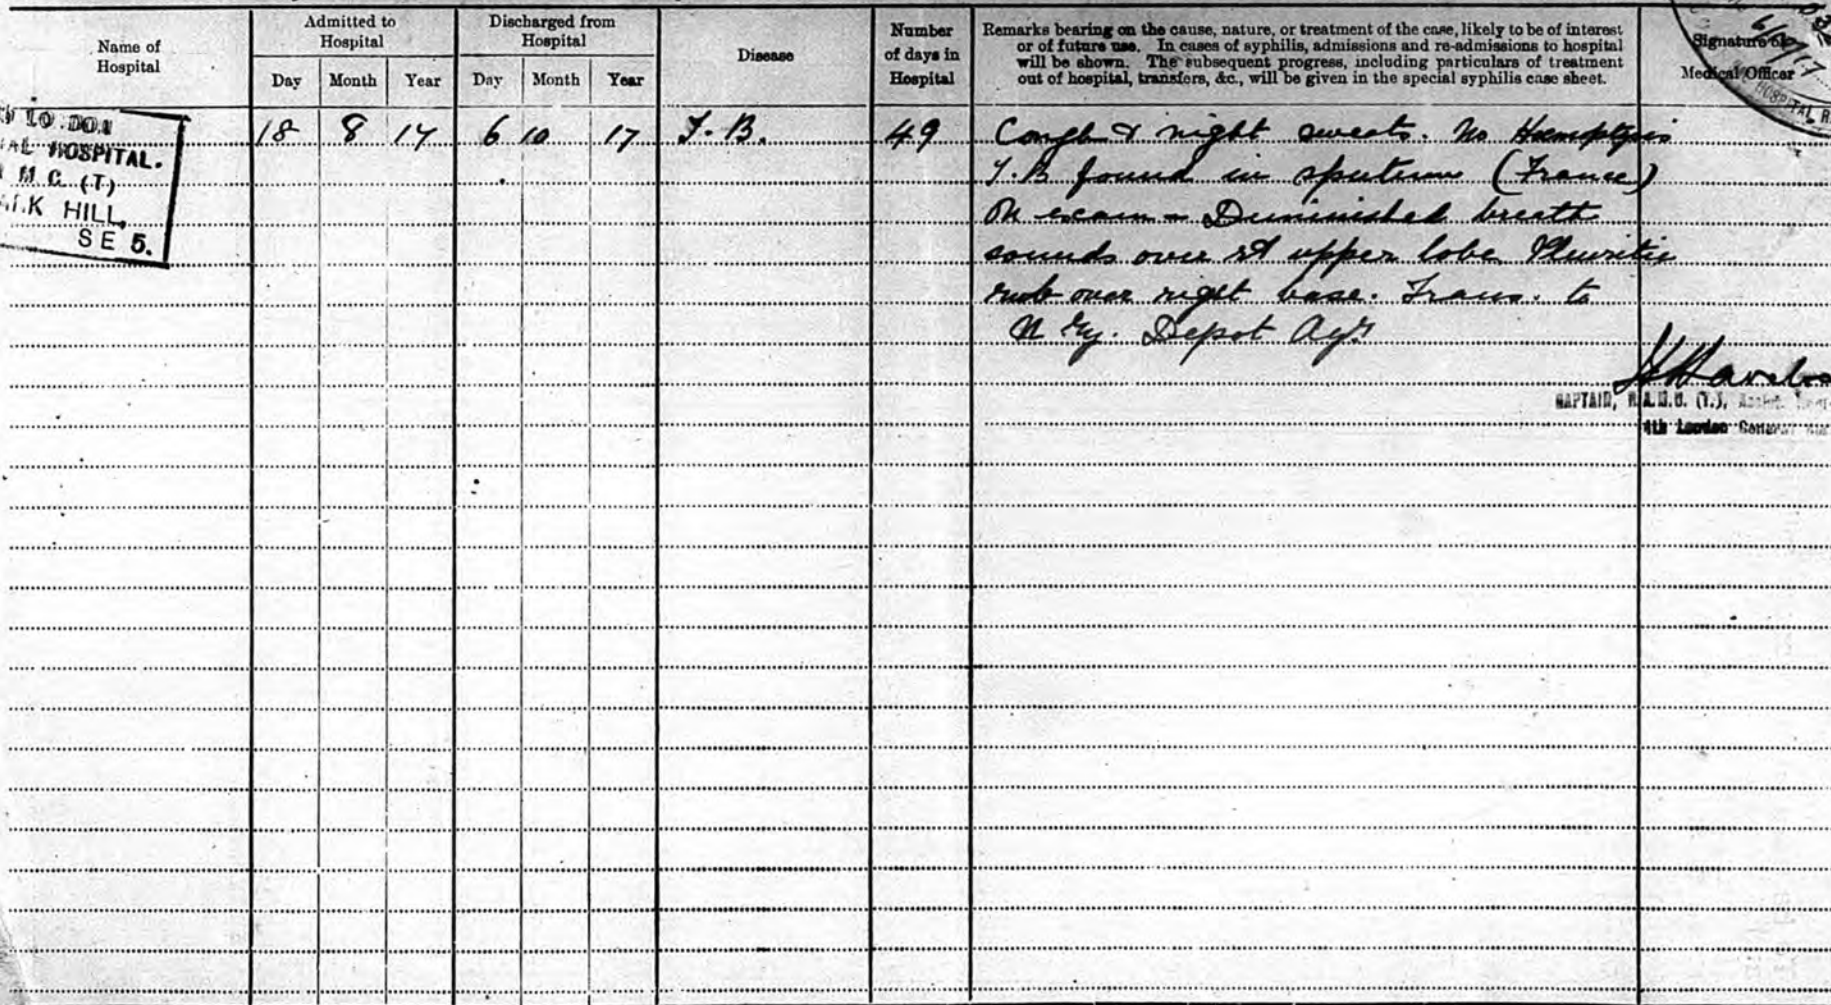 Name of
Hospital
Admitted to
Hospital
Day Month Year
Discharged from
Hospital
Day Month Year
Disease
Number
of days in
Hospital
Remarks bearing on the cause, nature, or treatment of the case, likely to be of interest
or of future use. In cases of syphilis, admissions and re-admissions to hospital
will be shown. The subsequent progress, including particulars of treatment
out of hospital, transfers, &c., will be given in the special syphilis case sheet.
Signature of
Medical Officer
6/10/17
HOSPITAL
HOSPITAL.
M C (T)
HILL,
S E 5.
18 8 17 6 10 17 T.B. 49
Cough & night sweats. No
T.B found in sputum (France)
On exam - Diminished breath
sounds over rt upper lobe Pleuritic
rub over right base. Trans. to
Depot
CAPTAIN, R.A.M.C. (T.),
4th London General